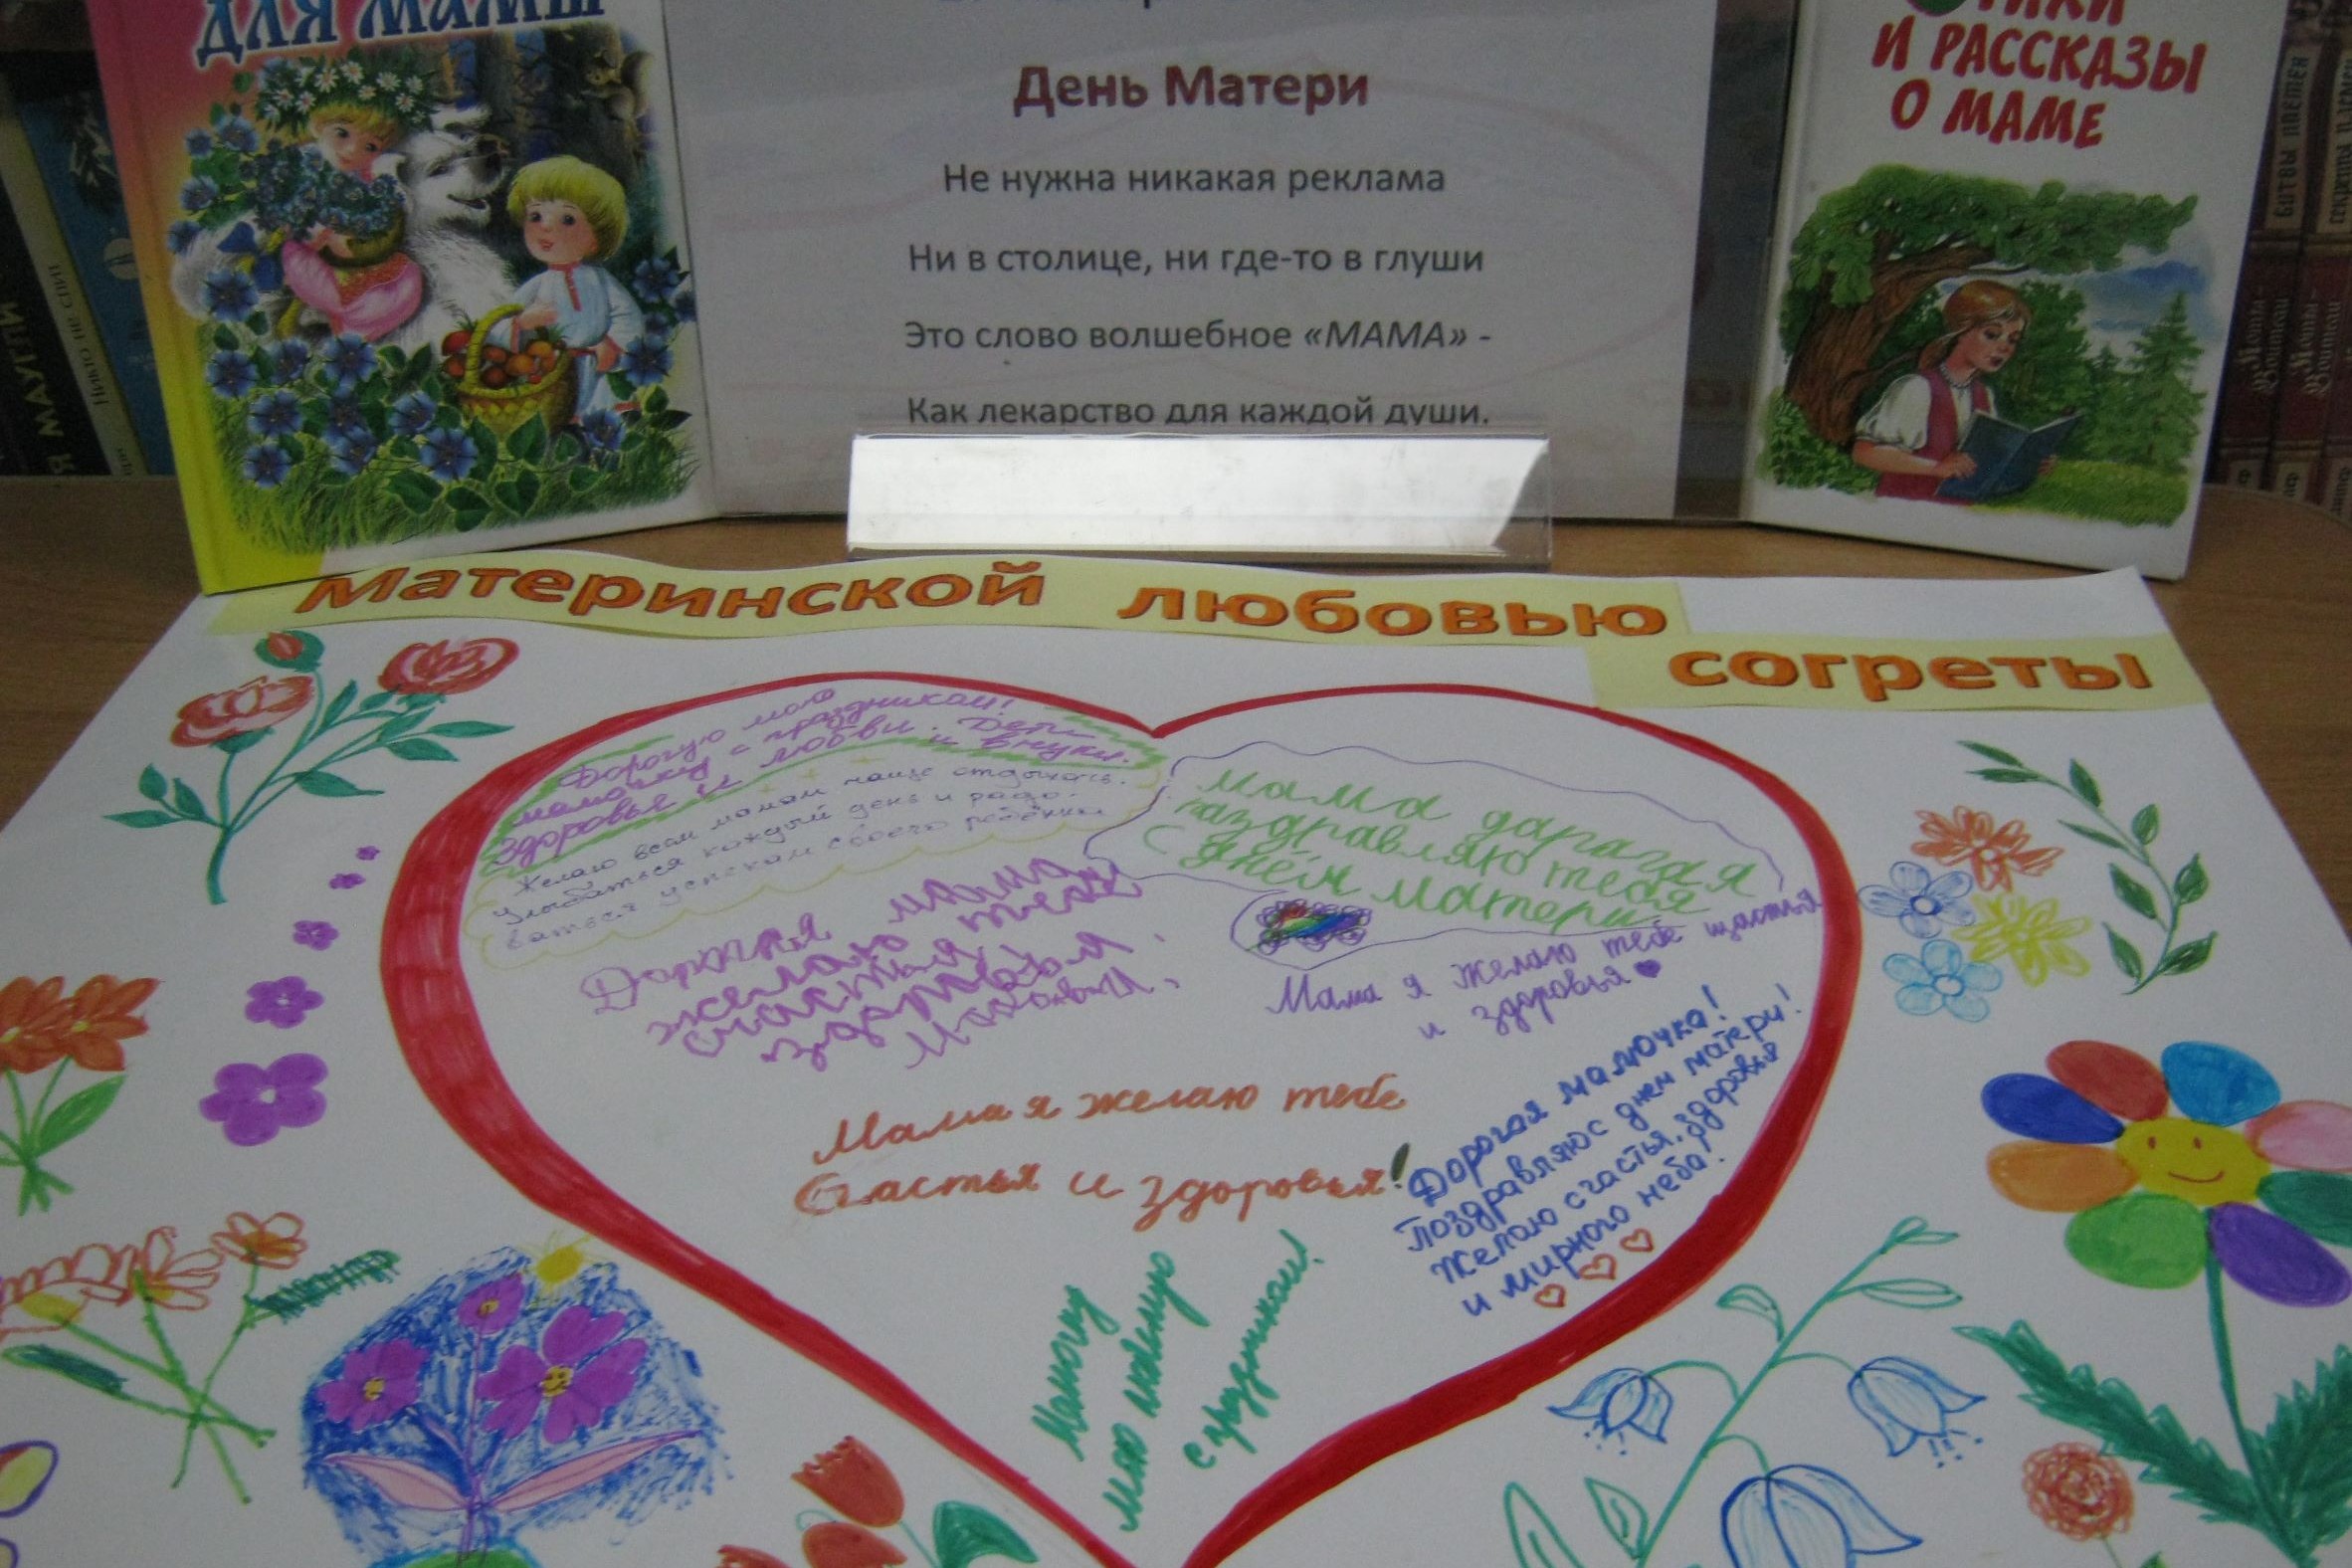 ДЛЯ МАМЫ
День Матери
Не нужна никакая реклама
Ни в столице, ни где-то в глуши
Это слово волшебное «МАМА» -
Как лекарство для каждой души.
И РАССКАЗЫ
О МАМЕ
МАУГЛИ
НИКТО НЕ СПИТ
БИТВЫ ПЛЕМЕН
Материнской любовью
согреты
Дорогую мою
мамочку с праздником!
Здоровья и любви. Дети
и внуки.
Желаю всем мамам чаще отдыхать.
Улыбаться каждый день и радо-
ваться успехам своего ребёнка
мама дарагая
паздравляю тебя
с днём матери
желаю мама
счастья тебе
Мама я желаю тебе щастья
и здоровья
Мама я желаю тебе
Счастья и здоровья!
Дорогая мамочка!
Поздравляю с днем матери!
Желаю счастья, здоровья
и мирного неба!
мою
с праздником!